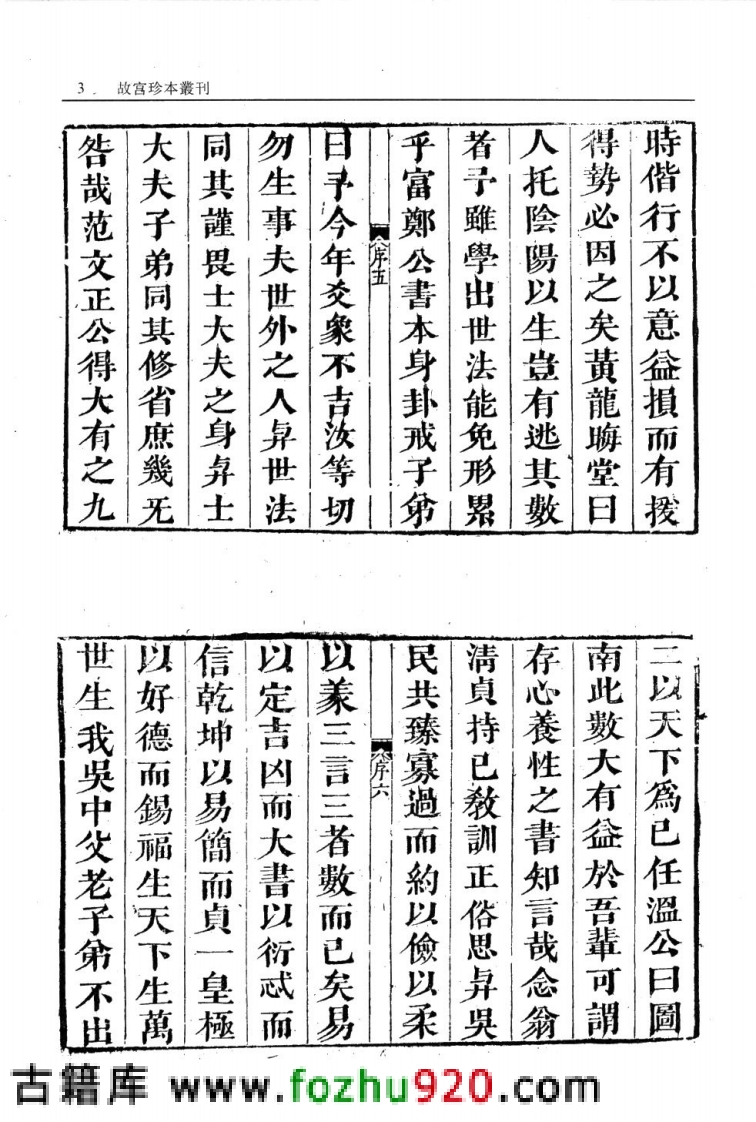 3 . 故宫珍本叢刊
時偕行不以意益損而有援
得勢必因之矣黃龍晦堂曰
人托陰陽以生豈有逃其數
者予雖學出世法能免形累
乎富鄭公書本身卦戒子弟
序五
曰予今年爻象不吉汝等切
勿生事夫世外之人昇世法
同其謹畏士大夫之身昇士
大夫子弟同其修省庶幾无
咎哉范文正公得大有之九
二以天下爲已任溫公曰圖
南此數大有益於吾輩可謂
存心養性之書知言哉念翁
淸貞持已敎訓正俗思昇吳
民共臻寡過而約以儉以柔
序六
以羕三言三者數而已矣易
以定吉凶而大書以衍忒而
信乾坤以易簡而貞一皇極
以好德而錫福生天下生萬
世生我吳中父老子弟不出
古籍库 www.fozhu920.com